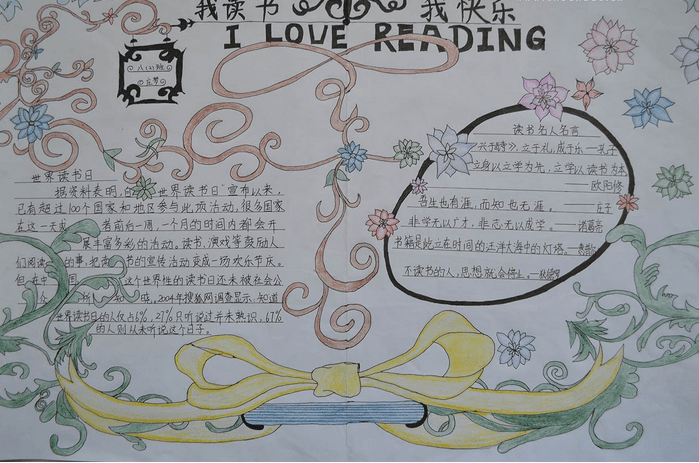 我读书 我快乐
I LOVE READING
八(2)班
世界读书日
据资料表明,自"世界读书日"宣布以来,
已有超过100个国家和地区参与此项活动,很多国家
在这一天或者前后一周、一个月的时间内都会开
展丰富多彩的活动。读书、演戏等鼓励人
们阅读的事,把读书的宣传活动变成一场欢乐节庆。
但在中国,这个世界性的读书日还未被社会公
2004年搜狐网调查显示,知道
世界读书日的人仅占6%,27%只听说过并未熟识,67%
的人则从未听说这个日子。
读书名人名言
兴于《诗》,立于礼,成于乐——孔子
立身以立学为先,立学以读书为本
——欧阳修
吾生也有涯,而知也无涯。——庄子
非学无以广才,非志无以成学。——诸葛亮
书籍是屹立在时间的汪洋大海中的灯塔。
不读书的人,思想就会停止。